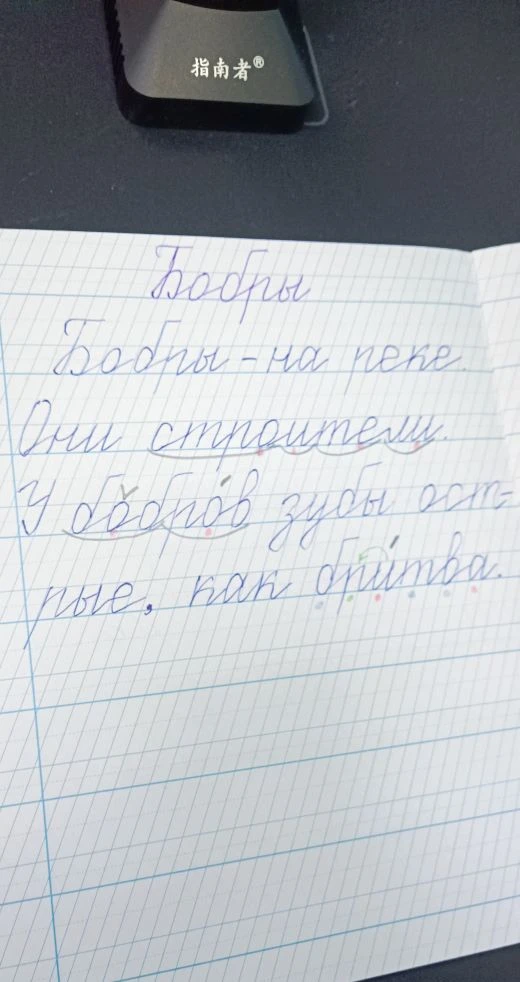 指南者®
Бобры
Бобры - на реке.
Они строители.
У бобров зубы ост=
рые, как бритва.